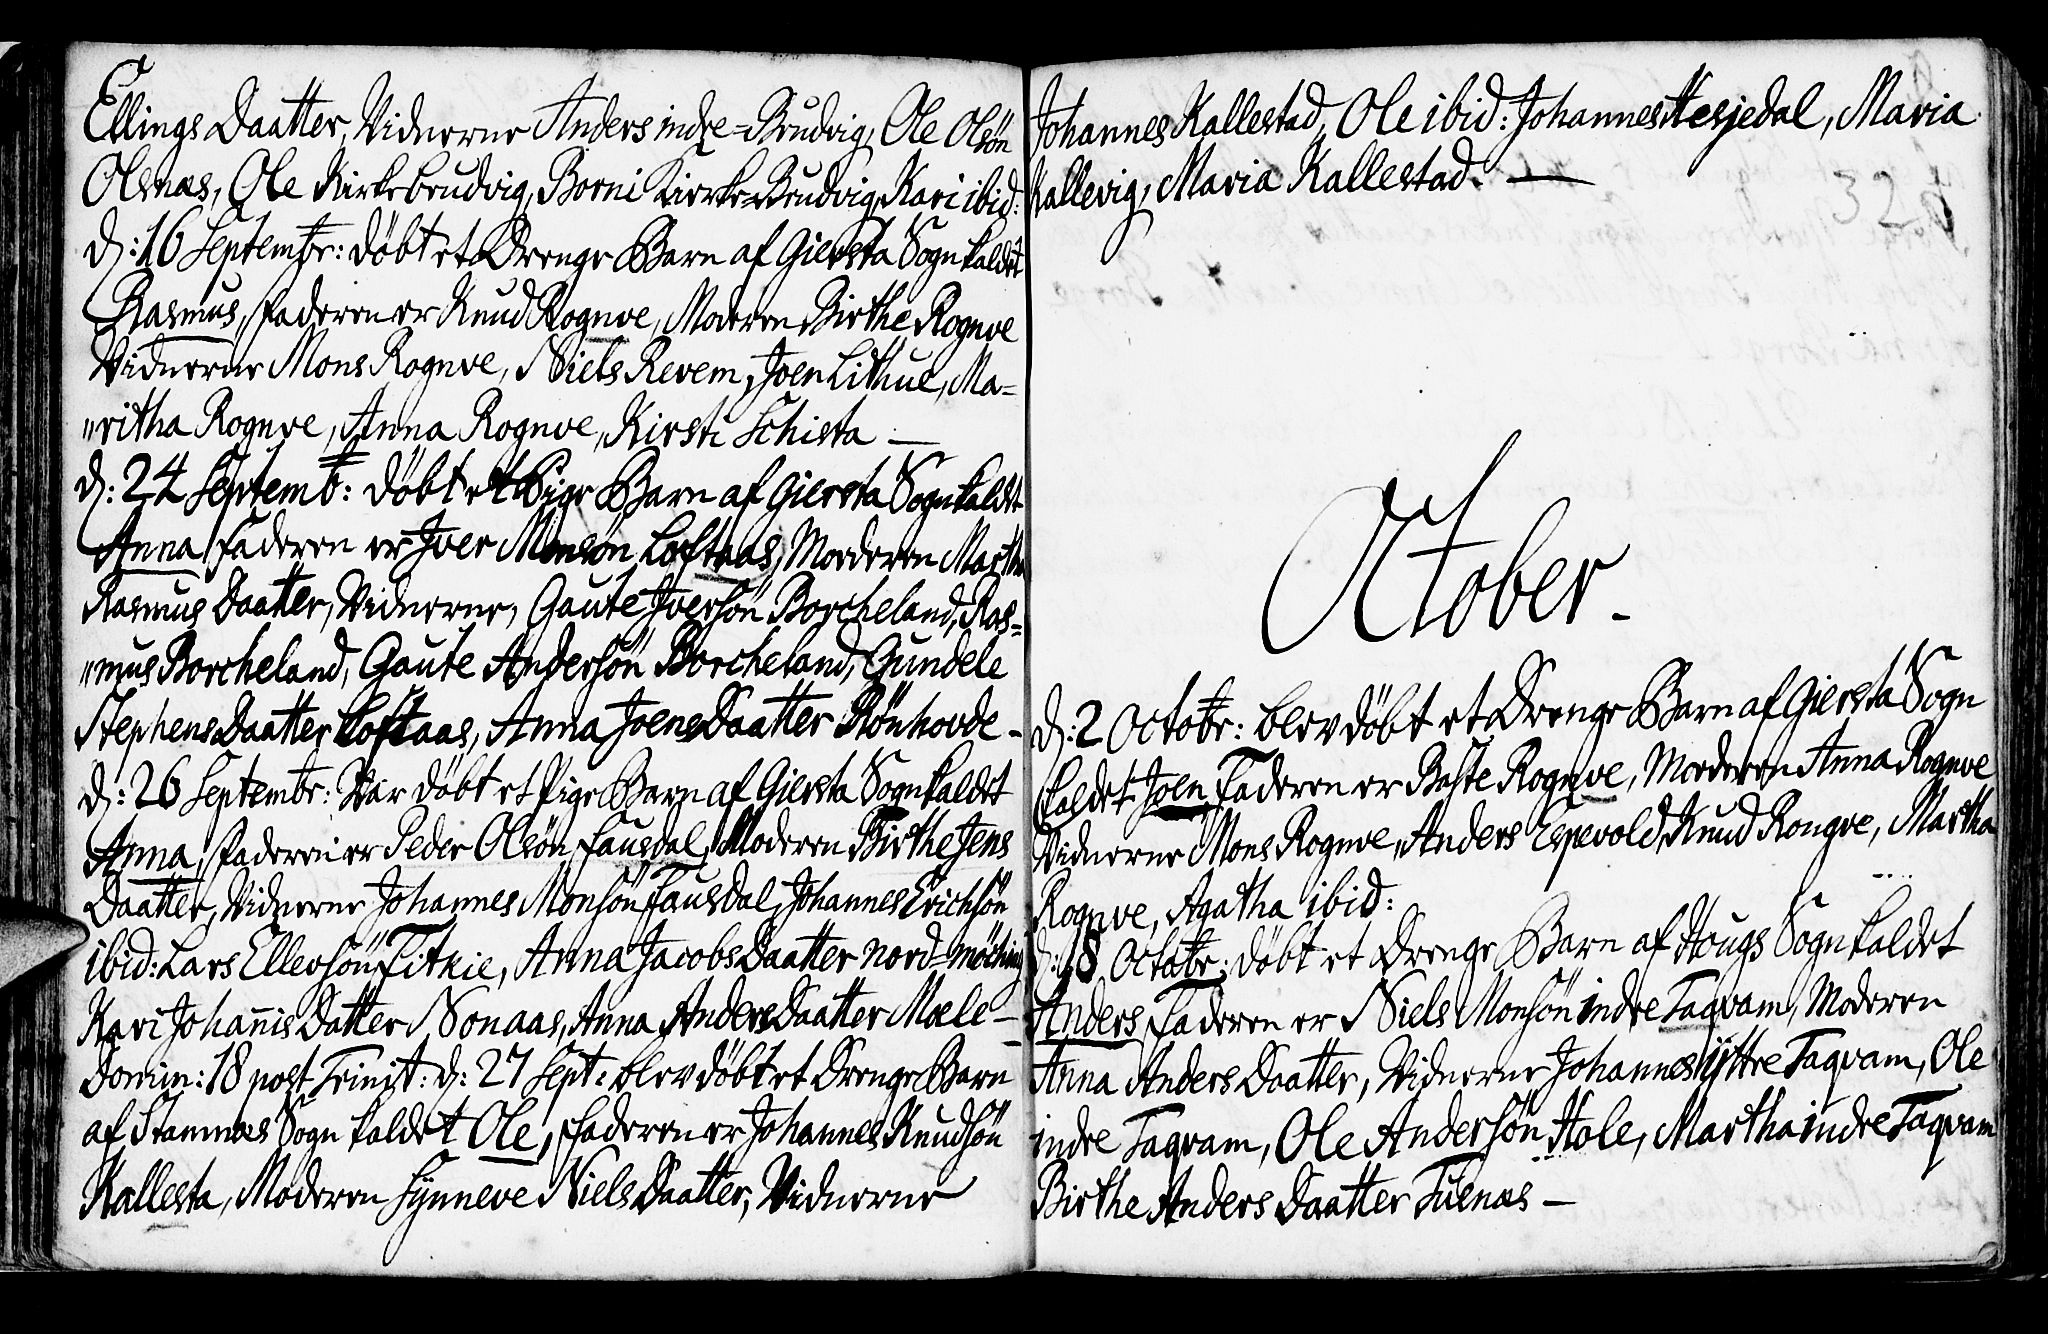 Ellings Daatter, Vidnerne Anders indre=Brudvig, Ole Olsön
Olsnæs, Ole Kirkebrudvig, Borni Kierke=Brudvig, Kari ibid:
d: 16 Septembr: döbt et Drenge Barn af Giersta Sogn kaldet
Rasmus, Faderen er Knud Rognve, Moderen Birthe Rognve
Vidnerne Mons Rognve, Niels Revem, Joen Lithue, Ma=
"ritha Rognve, Anna Rognve, Kirsti Schista —
d: 24 Septemb: döbt et Pige Barn af Giersta Sogn kaldet
Anna Faderen er Jver Monsön Loftaas, Moderen Martha
Rasmus Daatter, Vidnerne, Gaute Jversön Borcheland, Ras=
"mus Borcheland, Gaute Andersön Borcheland, Gundele
Stephens Daatter Loftaas, Anna Joens Daatter Rönhovde –
d: 26 Septembr: Var döbt et Pige Barn af Giersta Sogn kaldet
Anna, Faderen er Peder Olsön Fausdal, Moderen Birthe Jens
Daatter, Vidnerne Johannes Monsön Fausdal, Johannes Erichsön
ibid: Lars Ellersön Fitkie, Anna Jacobs Daatter nord=
Kari Johannis Datter Sonaas, Anna Anders Daatter Mæle —
Domin: 18 post Trinit: d: 27 Sept: blev döbt et Drenge Barn
af Stamnæs Sogn kaldet Ole, Faderen er Johannes Knudsön
Kallesta, Moderen Synneve Niels Daatter, Vidnerne
Johannes Kallestad, Ole ibid: Johannes Hesjedal, Maria
Kallevig, Maria Kallestad. —
32
October.
d: 2 Octobr: blev döbt et Drenge Barn af Giersta Sogn
kaldet Joen, Faderen er Baste Rognve, Moderen Anna Rognve
Vidnerne Mons Rognve, Anders Espevold, Knud Rongve, Martha
Rognve, Agatha ibid:
d: 18 Octobr: döbt et Drenge Barn af Hougs Sogn kaldet
Anders, Faderen er Niels Monsön indre Taqvam, Moderen
Anna Anders Daatter, Vidnerne Johannes ÿttre Taqvam, Ole
indre Taqvam, Ole Andersön Hole, Martha indre Taqvam
Birthe Anders Daatter Fuenæs —